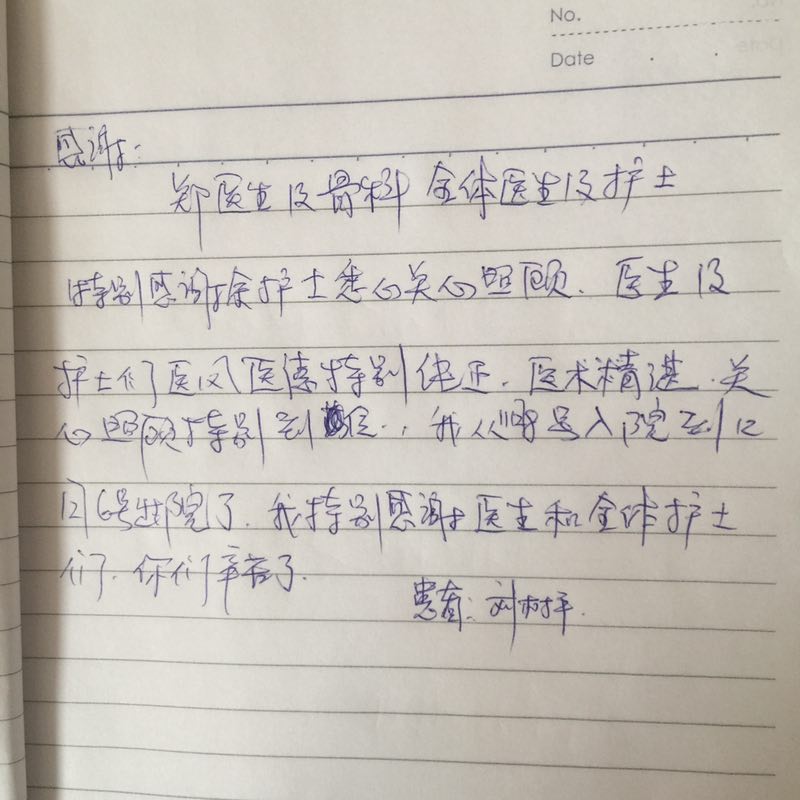 No.
Date
感谢:
郑医生及骨科全体医生及护士
特别感谢徐护士悉心关心照顾.医生及
护士们医风医德特别端正.医术精湛.关
心照顾特别到位.,我从 号入院到12
月6号出院了.我特别感谢医生和全体护士
们.你们辛苦了.
患者:刘树平.